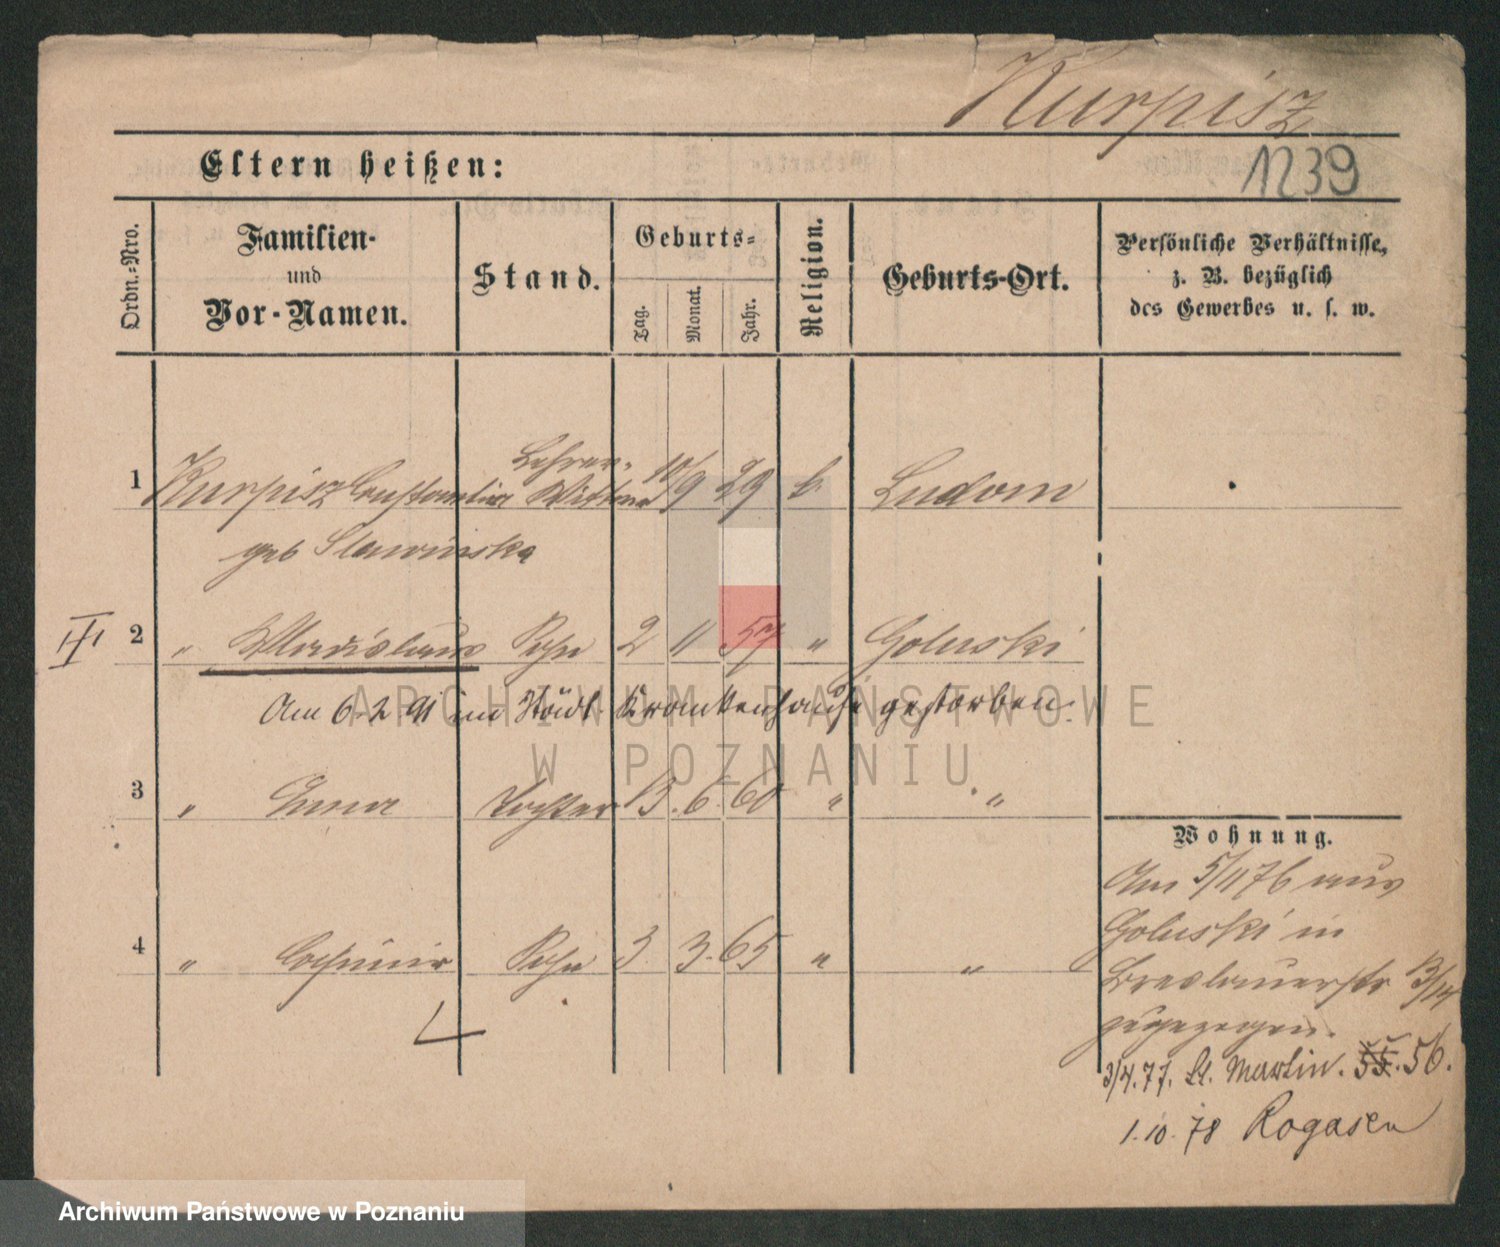 Kurpisz
1239
Eltern heißen:
Ordn.-Nro.
Familien-
und
Vor-Namen.
Stand.
Geburts-
Tag.
Monat.
Jahr.
Religion.
Geburts-Ort.
Persönliche Verhältnisse,
z. B. bezüglich
des Gewerbes u. s. w.
Lehrer-
1 Kurpisz Constantia Wittwe 10/9 29 k. Ludom
geb Slawinska
III 2 " Wladislaus Sohn 2 11 57 " Goluski
Am 6.2.91 im Städt. Krankenhause gestorben.
3 " Emma Tochter 13. 6. 60 " "
4 " Casimir Sohn 3. 3. 65 " "
Wohnung.
Am 5/11 76 aus
Goluski in
Breslauerstr 13/14
zugezogen.
3/4.77. St. Martin. 55. 56.
1.10.78 Rogasen
ARCHIWUM PAŃSTWOWE
W POZNANIU
Archiwum Państwowe w Poznaniu